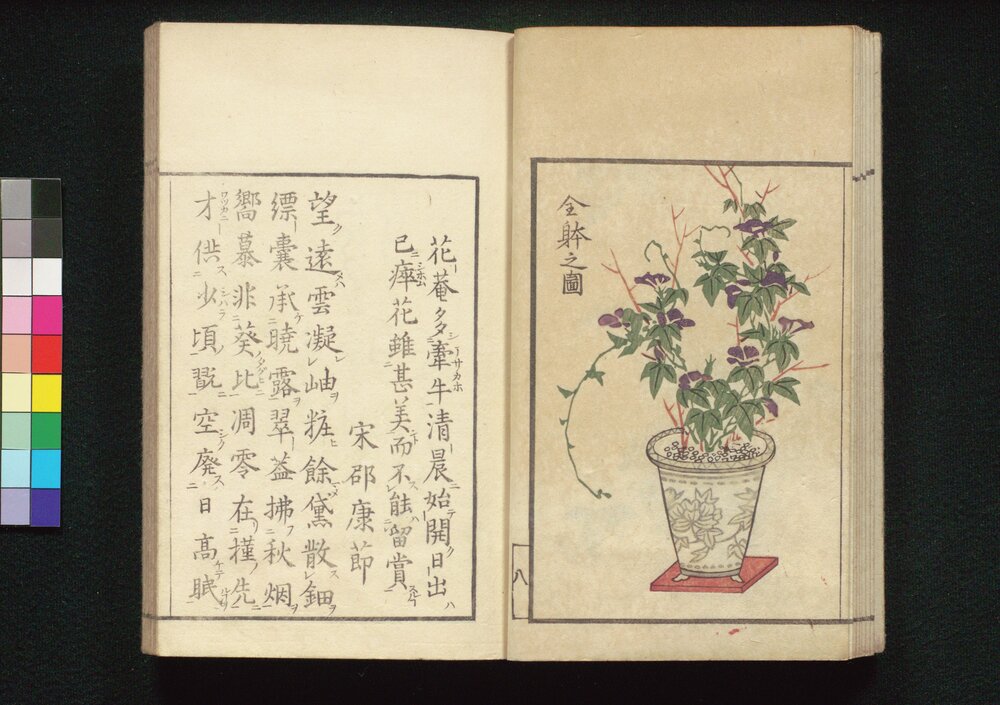 全躰之圖
八
花菴タタ牽牛清晨始開日出
已瘁花雖甚美而不能留賞
宋邵康節
望遠雲凝岫粧餘黛散鈿
縹囊承曉露翠葢拂秋烟
嚮慕非葵比凋零在槿先
才供少頃翫空廃日高眠